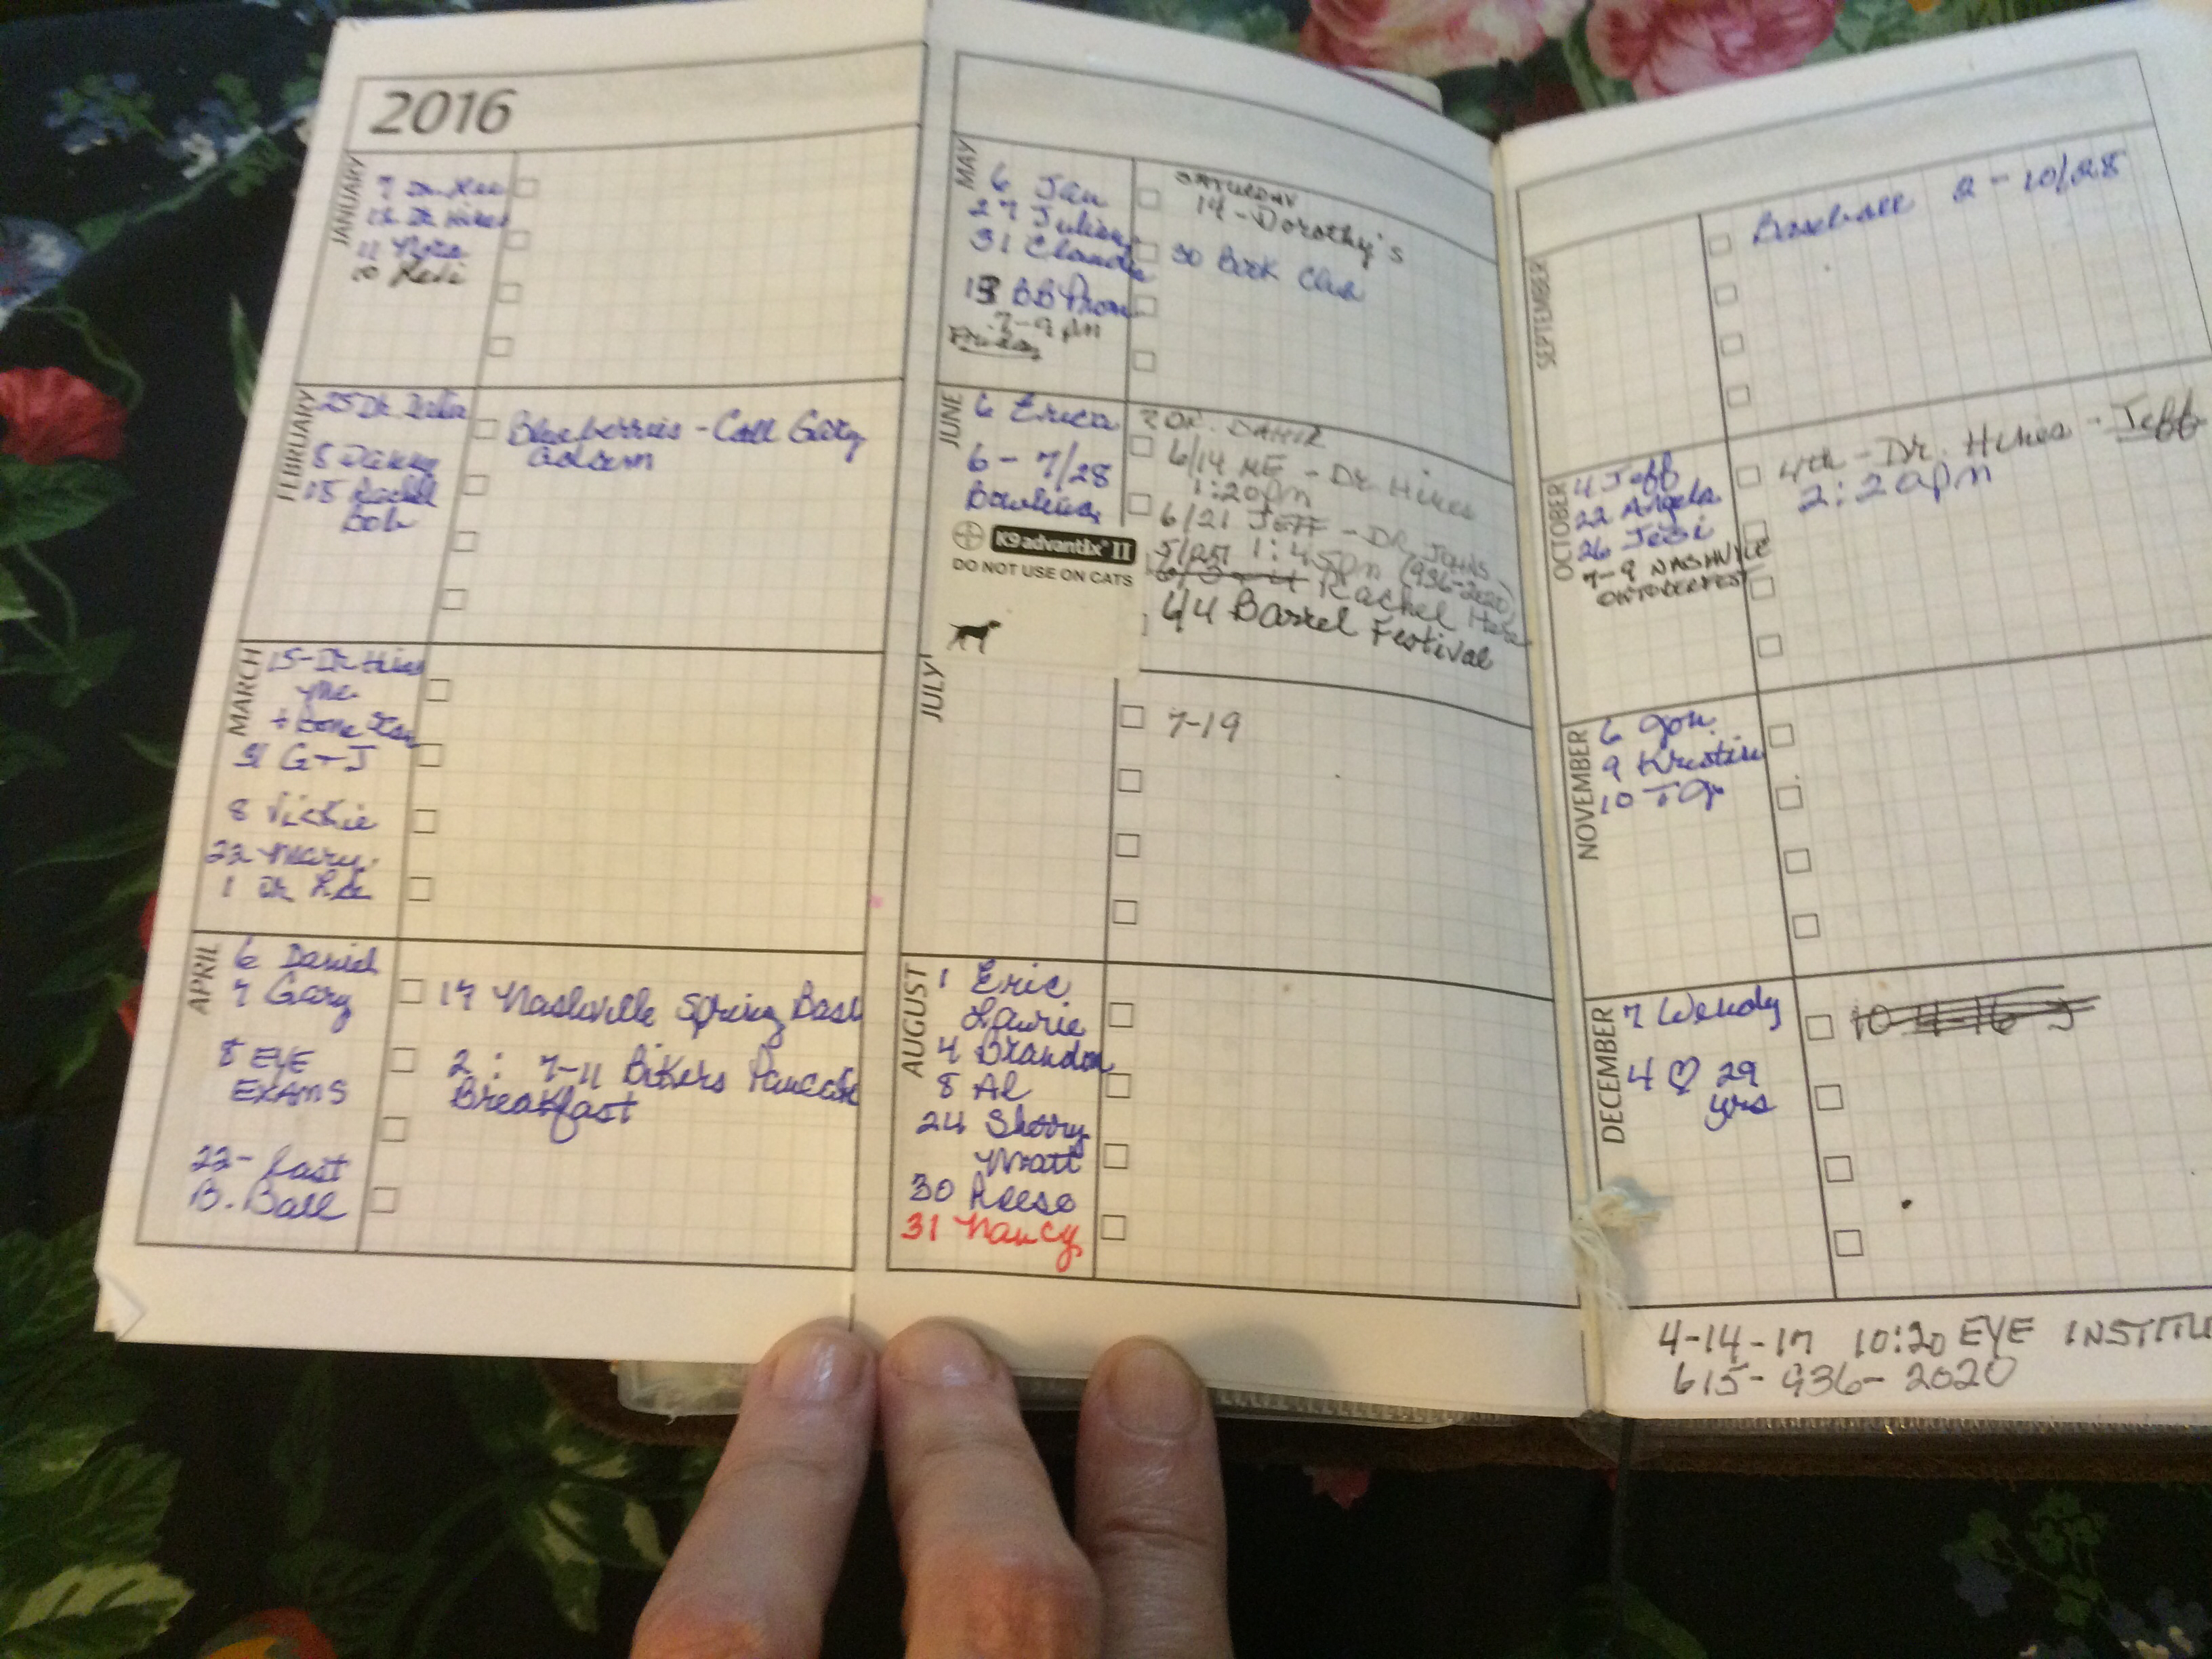 2016
JANUARY
7 Dr. Lee
12 Dr Hines
11
10
FEBRUARY
25 Dr.
8 Danny
15 Rachel
Bob
Blueberries - Call Gary
MARCH
15 - Dr Hines
me
+ Bone Scan
31 G + J
8 Vickie
22 Mary
1 Dr Lee
APRIL
6 Daniel
7 Gary
8 EYE
EXAMS
22 - Last
B. Ball
17 Nashville Spring Bash
2 : 7-11 Bikers Pancake
Breakfast
MAY
6 Jan
27
31 Claudia
13 BB Prom
7-9 pm
Friday
SATURDAY
14 - Dorothy's
30 Book Club
JUNE
6 Erica
6 - 7/28
Bowling
K9 advantix® II
DO NOT USE ON CATS
2 DR.
6/14 ME - Dr. Hines
1:20pm
6/21 JEFF - DR JOHNS
5/27 1:45pm (936-2020)
Rachel Here
6/4 Barrel Festival
JULY
7-19
AUGUST
1 Eric
Laurie
4 Brandon
8 Al
24 Sherry
Matt
30 Reese
31 Nancy
SEPTEMBER
Baseball 2 - 10/28
OCTOBER
4 Jeff
22 Angela
26 Jesi
7-9 NASHVILLE
OKTOBERFEST
4th - Dr. Hines - Jeff
2:20pm
NOVEMBER
6 Jon
9 Kristin
10 TJ
DECEMBER
7 Wendy
4 ♡ 29
yrs
4-14-17 10:20 EYE INSTITU
615-936-2020